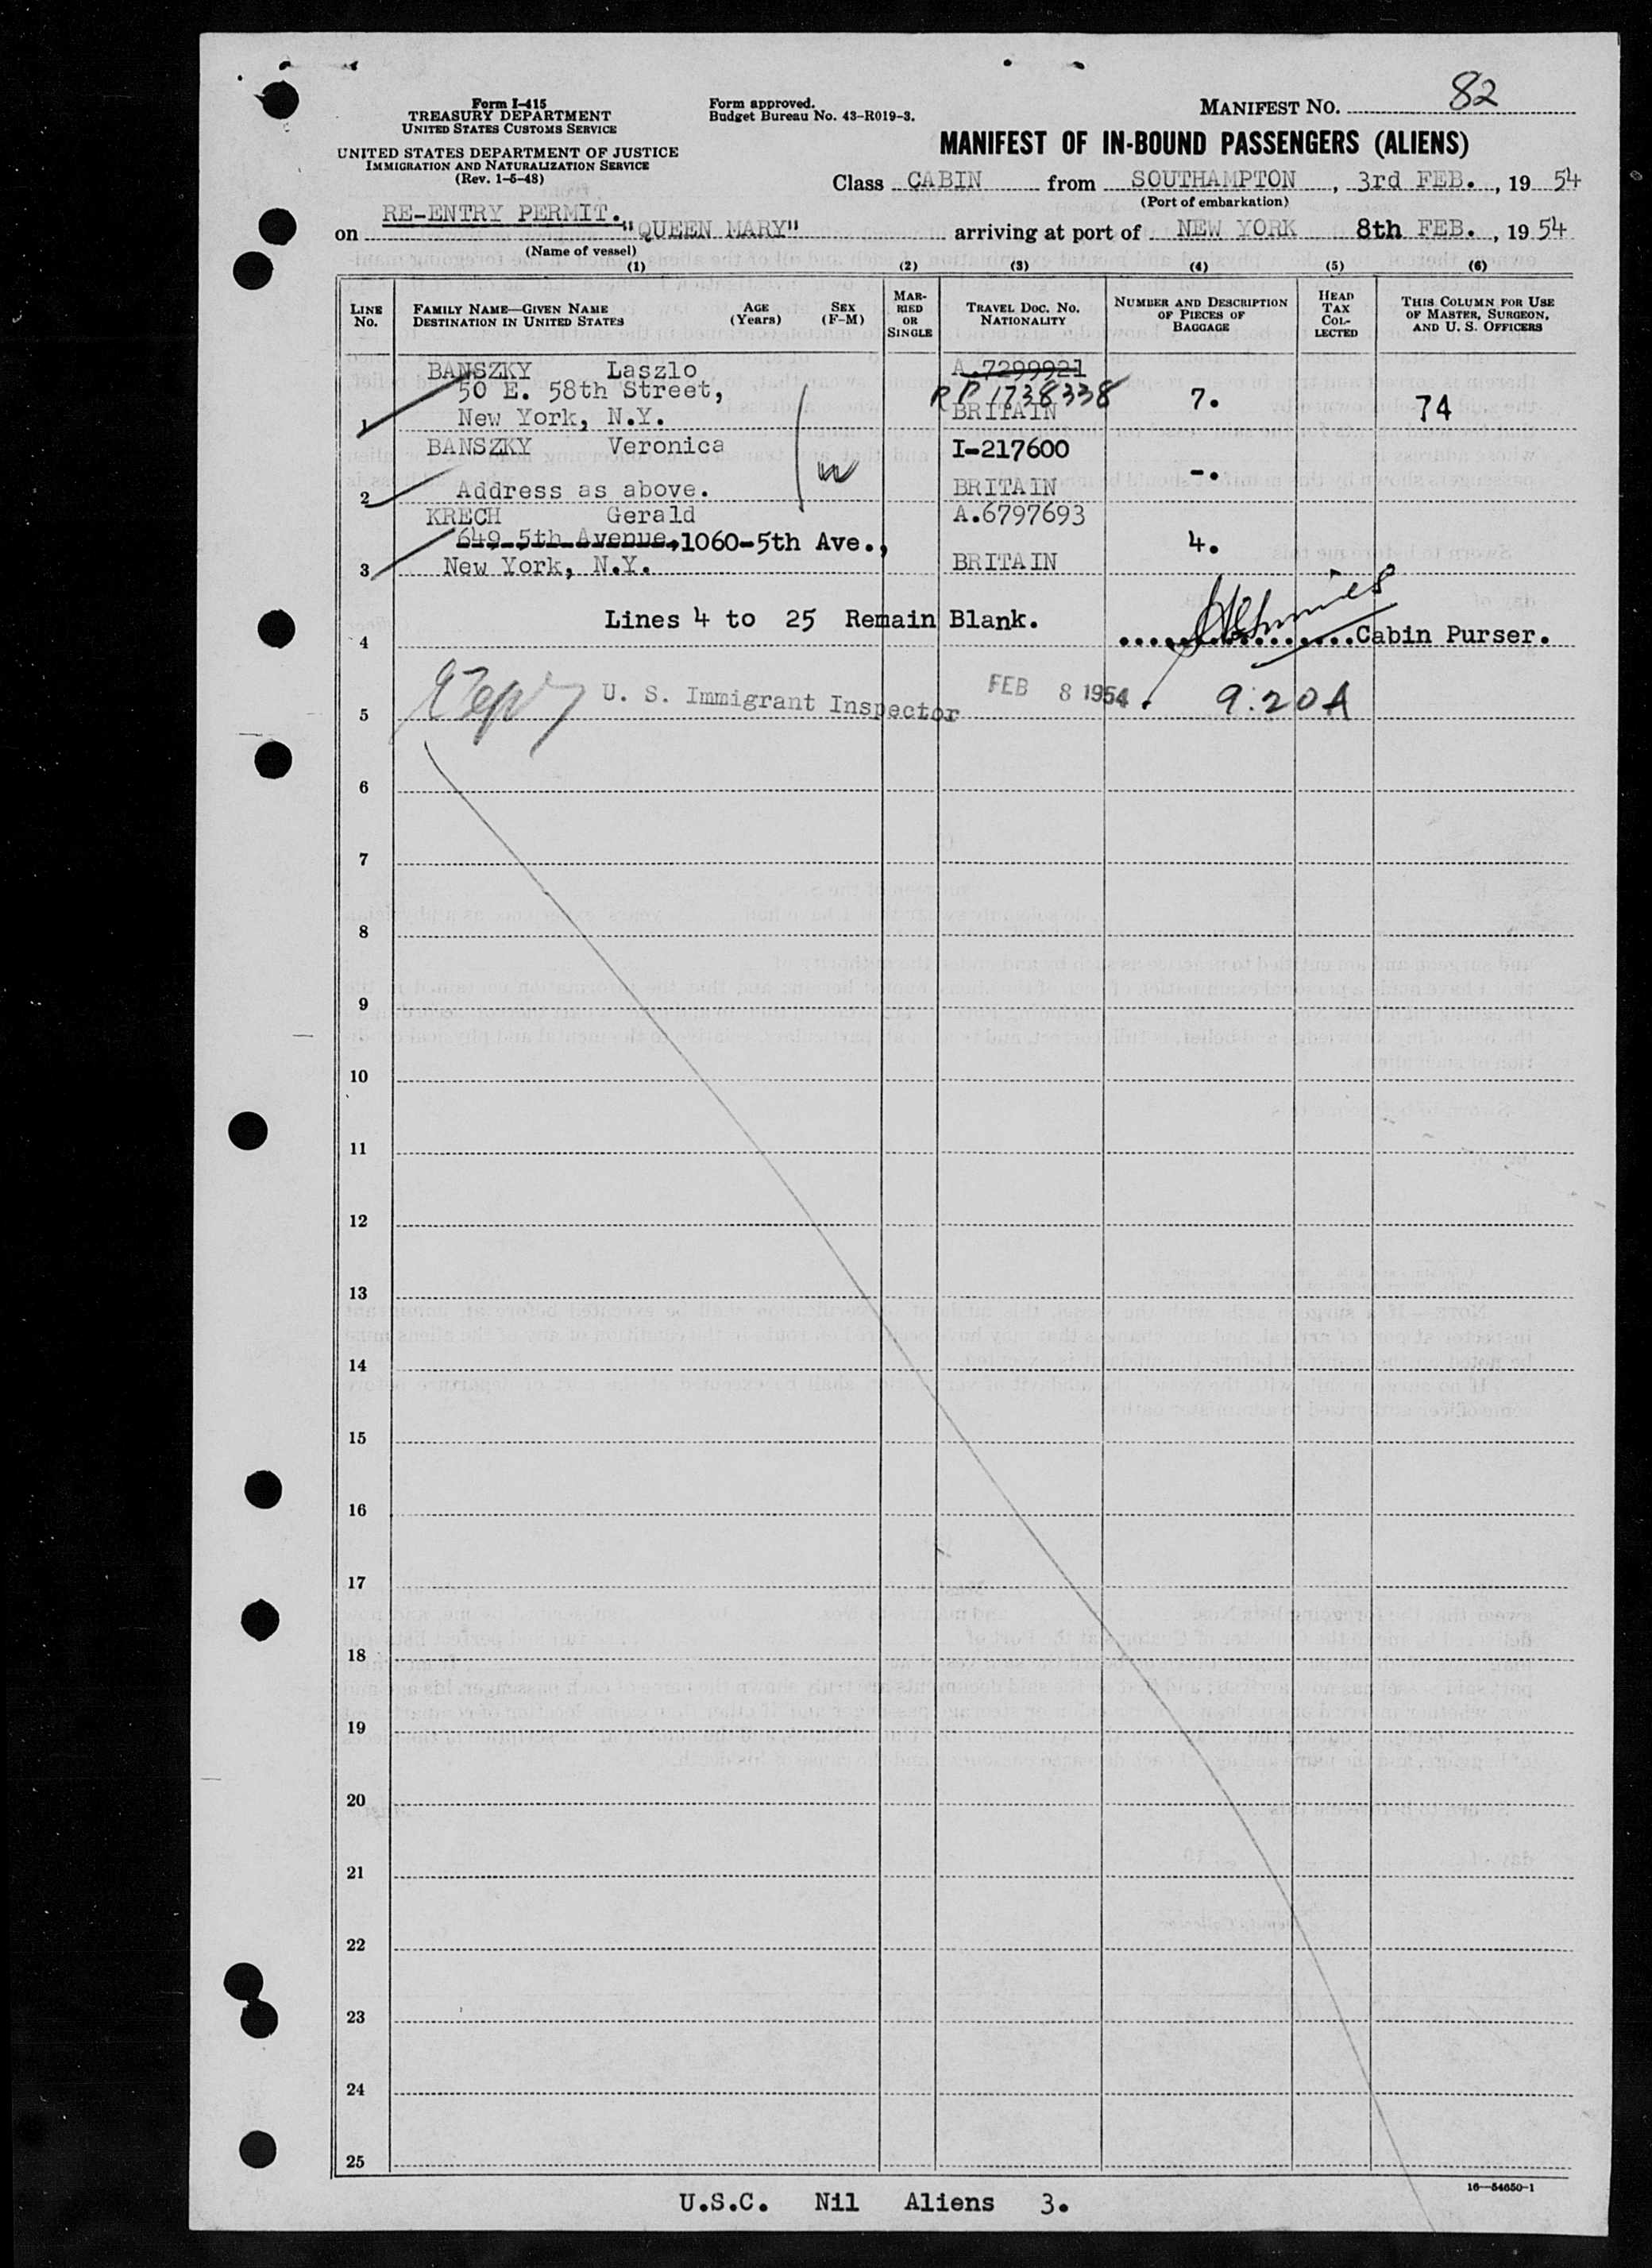 Form I-415
TREASURY DEPARTMENT
UNITED STATES CUSTOMS SERVICE
UNITED STATES DEPARTMENT OF JUSTICE
IMMIGRATION AND NATURALIZATION SERVICE
(Rev. 1-5-48)
Form approved.
Budget Bureau No. 43-R019-3.
MANIFEST NO. 82
MANIFEST OF IN-BOUND PASSENGERS (ALIENS)
Class CABIN from SOUTHAMPTON, 3rd FEB., 19 54
(Port of embarkation)
RE-ENTRY PERMIT.
on "QUEEN MARY" arriving at port of NEW YORK 8th FEB., 19 54
(Name of vessel)
(1) (2) (3) (4) (5) (6)
LINE No. FAMILY NAME—GIVEN NAME DESTINATION IN UNITED STATES AGE (Years) SEX (F-M) MARRIED OR SINGLE TRAVEL DOC. NO. NATIONALITY NUMBER AND DESCRIPTION OF PIECES OF BAGGAGE HEAD TAX COLLECTED THIS COLUMN FOR USE OF MASTER, SURGEON, AND U. S. OFFICERS
BANSZKY Laszlo A.7299921
50 E. 58th Street, RP 1738338 7. 74
1 New York, N.Y. BRITAIN
BANSZKY Veronica I-217600
-.
2 Address as above. BRITAIN
KRECH Gerald A.6797693
649 5th Avenue, 1060-5th Ave., 4.
3 New York, N.Y. BRITAIN
Lines 4 to 25 Remain Blank.
4 Cabin Purser.
U. S. Immigrant Inspector FEB 8 1954 9:20A
5
6
7
8
9
10
11
12
13
14
15
16
17
18
19
20
21
22
23
24
25
16—54650-1
U.S.C. Nil Aliens 3.